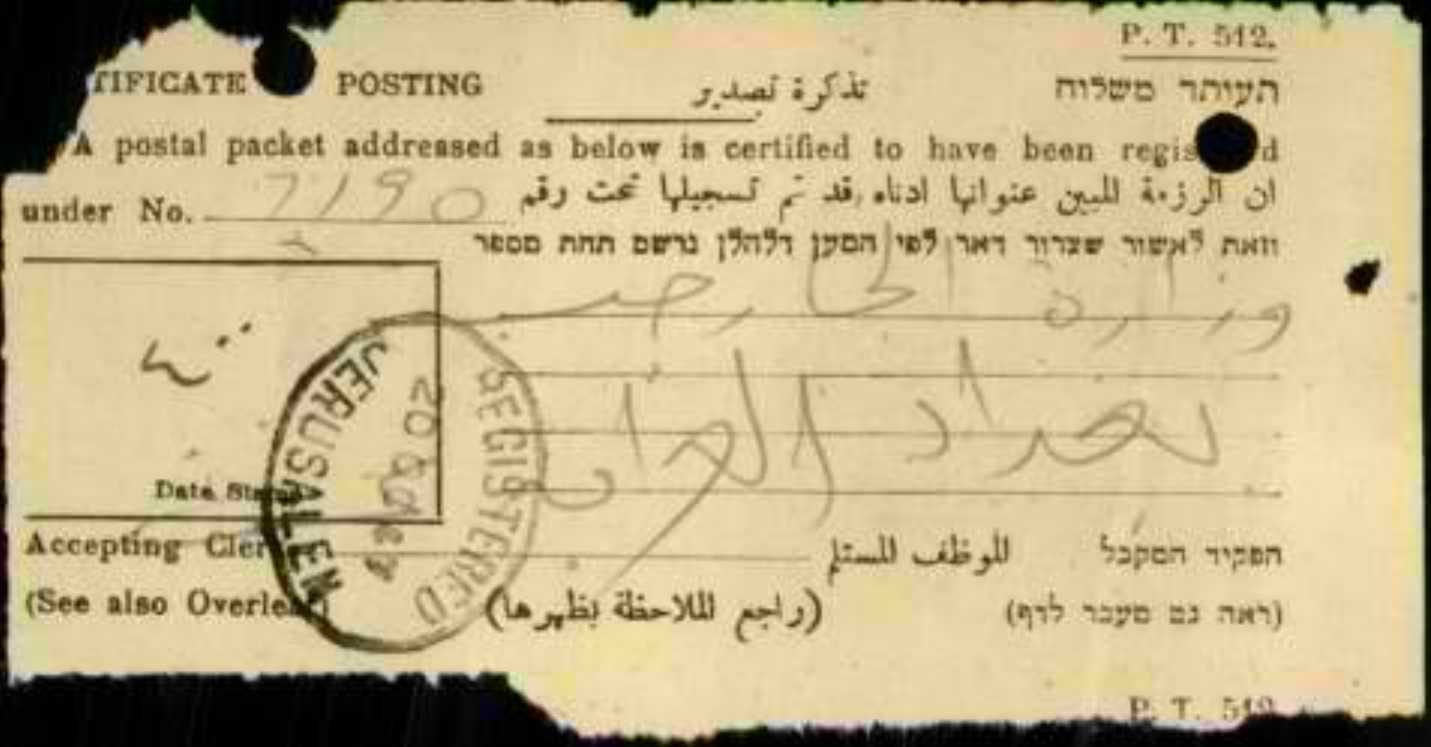 P. T. 512.
TIFICATE POSTING تذكرة تصدير תעודת משלוח
A postal packet addressed as below is certified to have been regis d
ان الرزمة المبين عنوانها ادناه قد تم تسجيلها تحت رقم
under No. 7190
וזאת לאשור שצרור דאר לפי המען דלהלן נרשם תחת מספר
وزارة الخارجية
بغداد العراق
JERUSALEM
REGISTERED
Date Stamp
Accepting Clerk الموظف المستلم הפקיד המקבל
(See also Overleaf) (راجع الملاحظة بظهرها) (ראה גם מעבר לדף)
P. T. 512